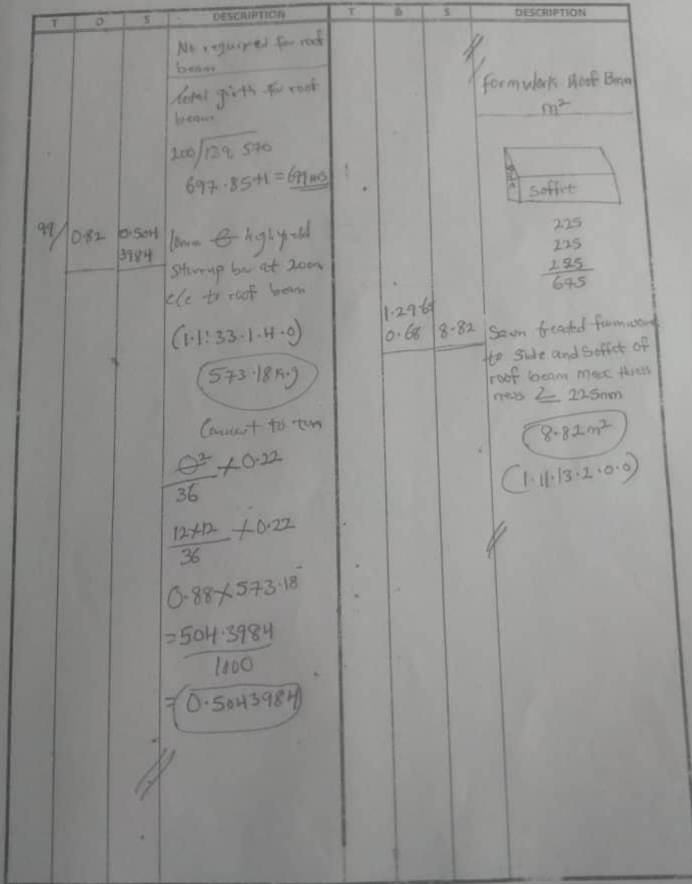 T D S DESCRIPTION
No required for roof
beam
Total girth for roof
beam
200/139,570
697.85+1=699nos
99/ 0.82 0.504
3984
high yield
stirrup bar at 200
c/c to roof beam
(1.1.33.1.4.0)
573.18kg
Convert to
Ө²/36 × 0.22
12×12/36 × 0.22
0.88×573.18
=504.3984
1000
=0.5043984
T D S DESCRIPTION
Formwork Roof Beam
m²
Soffit
225
225
225
675
1.29.65
0.68 8.82
Sawn treated formwork
to side and Soffit of
roof beam max thick
ness ≤ 225mm
8.82m²
(1.11.13.2.0.0)